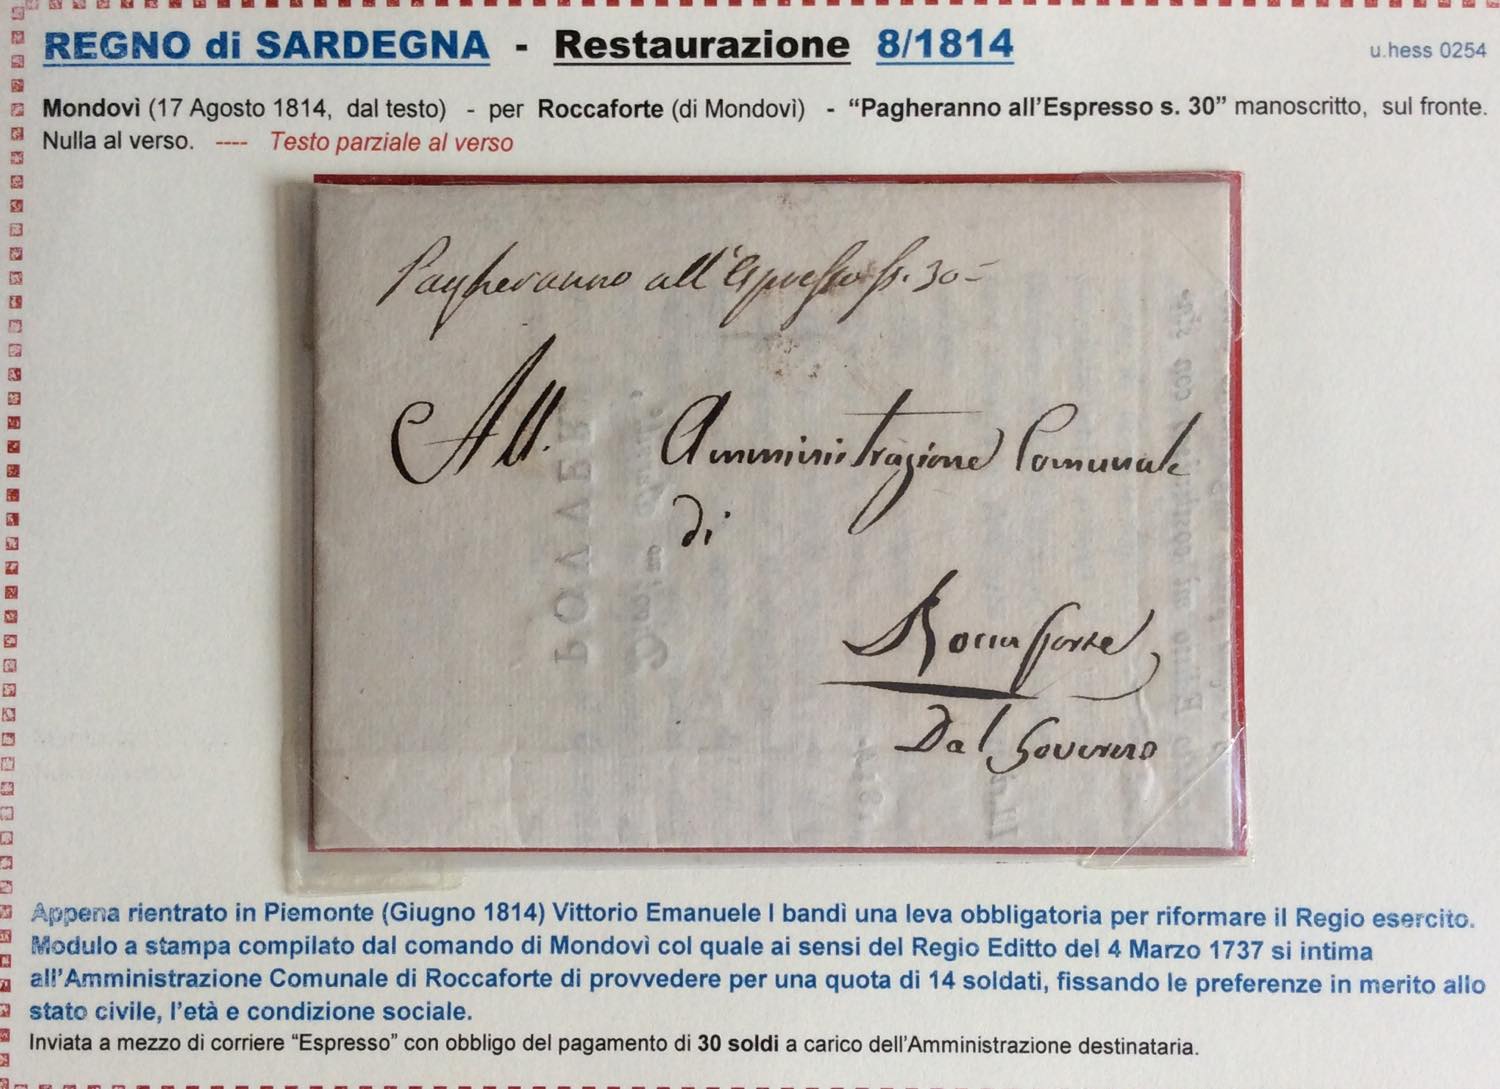 REGNO di SARDEGNA - Restaurazione 8/1814
u.hess 0254
Mondovì (17 Agosto 1814, dal testo) - per Roccaforte (di Mondovì) - “Pagheranno all’Espresso s. 30” manoscritto, sul fronte.
Nulla al verso. ---- Testo parziale al verso
Pagheranno all'Espresso s. 30=
All. Amministrazione Comunale
di
Roccaforte
Dal Governo
Appena rientrato in Piemonte (Giugno 1814) Vittorio Emanuele I bandì una leva obbligatoria per riformare il Regio esercito.
Modulo a stampa compilato dal comando di Mondovì col quale ai sensi del Regio Editto del 4 Marzo 1737 si intima
all’Amministrazione Comunale di Roccaforte di provvedere per una quota di 14 soldati, fissando le preferenze in merito allo
stato civile, l’età e condizione sociale.
Inviata a mezzo di corriere “Espresso” con obbligo del pagamento di 30 soldi a carico dell’Amministrazione destinataria.